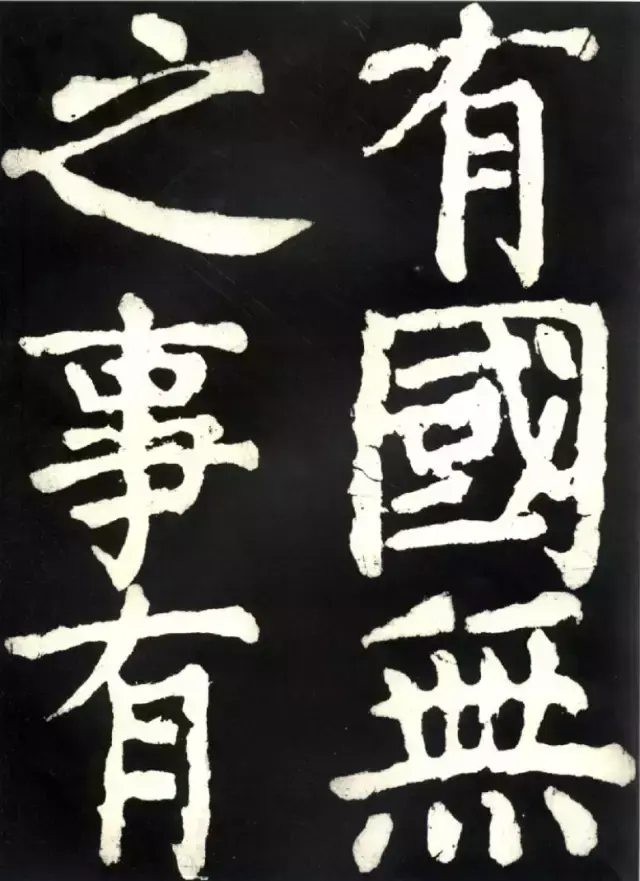 有國無
之事有